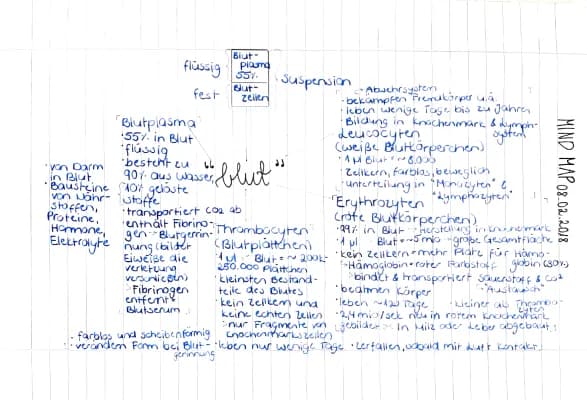 MIND MAP 02.02.2018
flüssig
Blut-
plasma
55%
fest
Blut-
zellen
Suspension
"blut"
Blutplasma
· 55% in Blut
· flüssig
· besteht zu
90% aus Wasser,
10% gelöste
Stoffe
· transportiert CO2 ab
· enthält Fibrino-
gen - Blutgerin-
nung (bildet
Eiweiße die
Verletzung
verschließen)
· Fibrinogen
entfernt =
Blutserum
· von Darm
in Blut
· Bausteine
von Nähr-
stoffen,
Proteine,
Hormone,
Elektrolyte
Thrombocyten
(Blutplättchen)
· 1 µl Blut = ~ 200k-
250.000 Plättchen
· kleinsten Bestand-
teile des Blutes
· kein Zellkern und
keine echten Zellen
· nur Fragmente von
Knochenmarkszellen
· farblos und scheibenförmig
· verändern Form bei Blut-
gerinnung
· leben nur wenige Tage
· zerfallen, sobald mit Luft Kontakt
· Abwehrsystem
· bekämpfen Fremdkörper u.a.
· leben wenige Tage bis zu Jahren
· Bildung in Knochenmark & Lymph-
system
Leucocyten
(weiße Blutkörperchen)
· 1 µl Blut = ~ 8.000
· Zellkern, farblos, beweglich
· unterteilung in "Monozyten" &
"Lymphozyten"
Erythrozyten
(rote Blutkörperchen)
· 99% in Blut
· Herstellung in Knochenmark
· 1 µl Blut = ~5 mio
· große Gesamtfläche
· kein Zellkern = mehr Platz für Hämo-
globin (90%)
· Hämoglobin = roter Farbstoff
bindet & transportiert Sauerstoff & CO2
"Austausch"
· beatmen Körper
· leben ~ 120 Tage
· kleiner als Thrombo-
zyten
· 2,4 mio/sek neu in rotem Knochenmark
gebildet
· in Milz oder Leber abgebaut